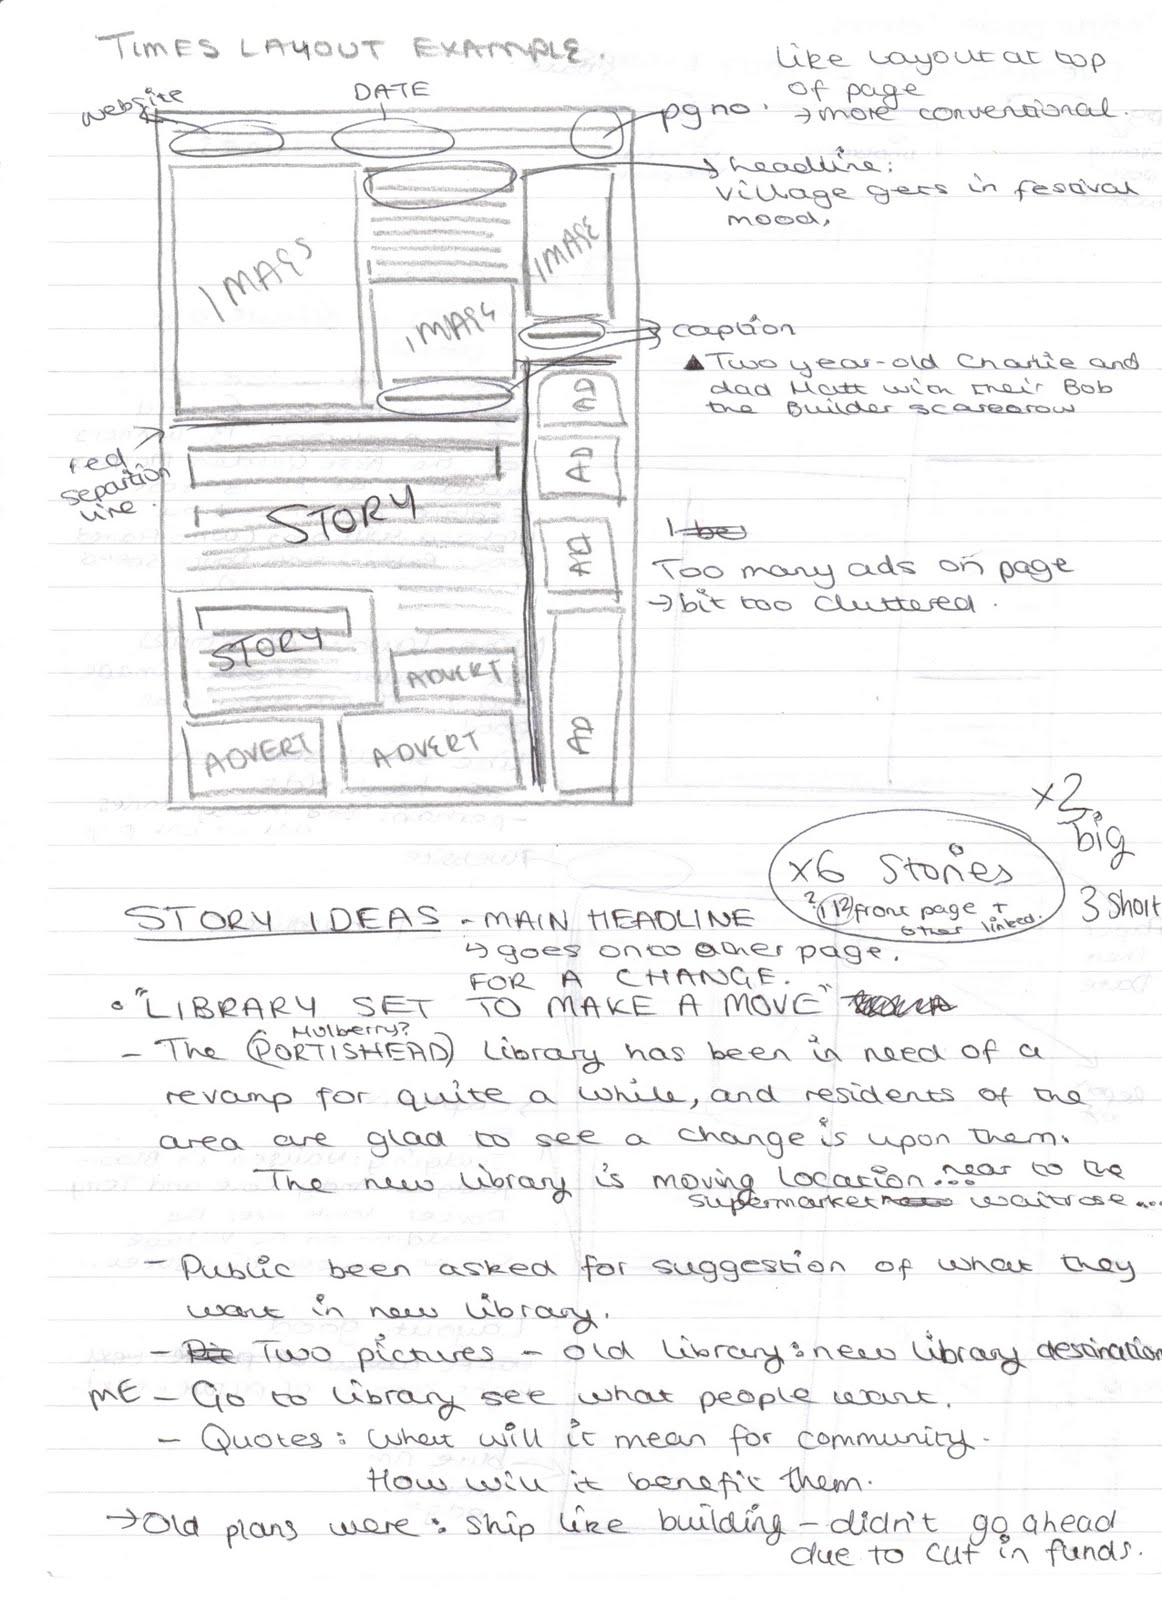 TIMES LAYOUT EXAMPLE.
website
DATE
pg no.
like layout at top
of page
→ more conventional.
→ headline:
village gets in festival
mood.
IMAGE
IMAGE
IMAGE
caption
▲ Two year-old Charlie and
dad Matt with their Bob
the Builder scarecrow
red
separtion
line.
STORY
AD
AD
AD
AD
I be
Too many ads on page
→ bit too cluttered.
STORY
ADVERT
ADVERT
ADVERT
x2
big
3 short
x6 stories
front page +
other linked.
STORY IDEAS - MAIN HEADLINE
↳ goes onto other page.
FOR A CHANGE.
• "LIBRARY SET TO MAKE A MOVE"
Mulberry?
- The (PORTISHEAD) library has been in need of a
revamp for quite a while, and residents of the
area are glad to see a change is upon them.
The new library is moving location... near to the
supermarket waitrose...
- Public been asked for suggestion of what they
want in new library.
- Pic Two pictures - old library : new library destination
ME - Go to library see what people want.
- Quotes: What will it mean for community.
How will it benefit them.
→ Old plans were: ship like building - didn't go ahead
due to cut in funds.